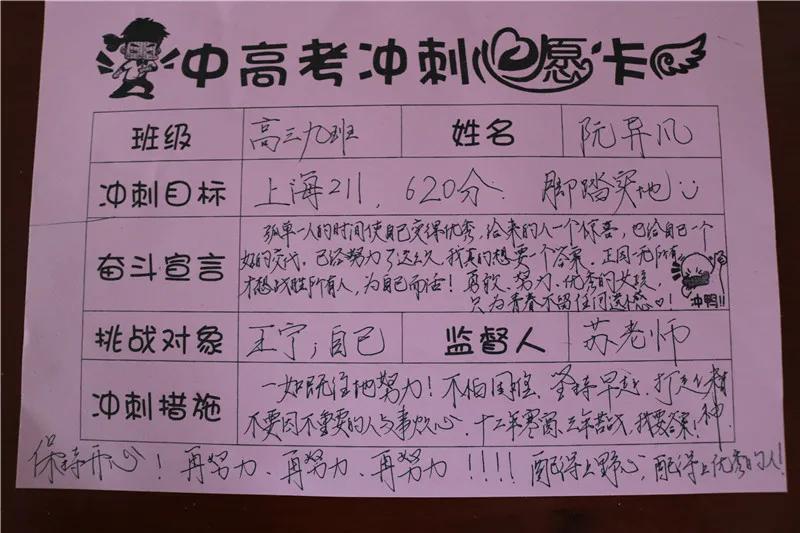 中高考冲刺心愿卡
班级 高三九班 姓名 阮异凡
冲刺目标 上海211，620分 脚踏实地
孤单一人的时间使自己变得优秀，给来的人一个惊喜，也给自己一个
奋斗宣言 好的交代。已经努力了这么久，我真的想要一个答案。正因一无所有
才想战胜所有人，为自己而活！勇敢、努力、优秀的女孩，
只为青春不留任何遗憾！
冲鸭!!
挑战对象 王宁；自己 监督人 苏老师
一如既往地努力！不怕困难、坚持早起、打起精神
冲刺措施 不要因不重要的人与事烦心。十二年寒窗、三年苦战，我要答案！
保持开心！再努力、再努力、再努力！！！！配得上野心，配得上优秀的人！